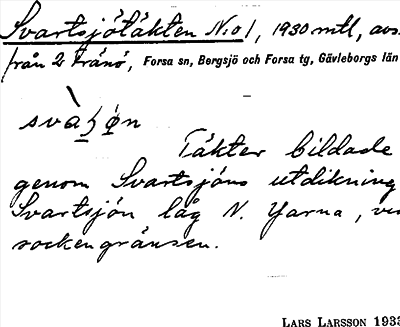 Svartsjötäkten N:o 1, 1930 mtl, avs.
från 2 Tränö, Forsa sn, Bergsjö och Forsa tg, Gävleborgs län
Täkter bildade
genom Svartsjöns utdikning
Svartsjön låg N. Yarna, vid
sockengränsen.
LARS LARSSON 1933